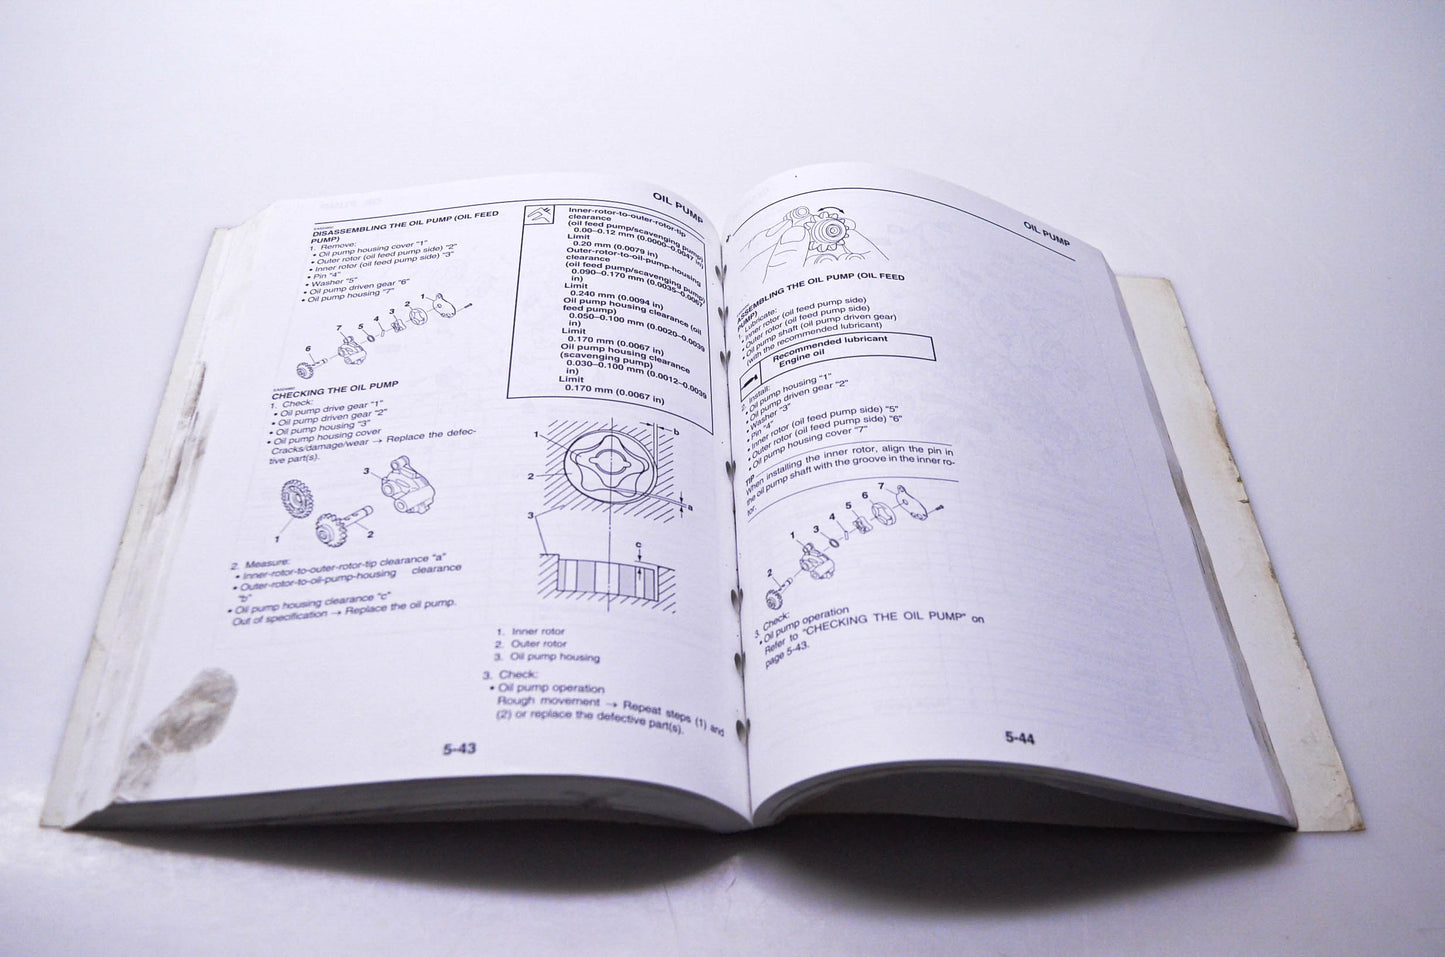 OIL PUMP
DISASSEMBLING THE OIL PUMP (OIL FEED
PUMP)
1. Remove:
• Oil pump housing cover "1"
• Outer rotor (oil feed pump side) "2"
• Inner rotor (oil feed pump side) "3"
• Pin "4"
• Washer "5"
• Oil pump driven gear "6"
• Oil pump housing "7"
1
2
3
4
5
7
6
CHECKING THE OIL PUMP
1. Check:
• Oil pump drive gear "1"
• Oil pump driven gear "2"
• Oil pump housing "3"
• Oil pump housing cover
Cracks/damage/wear → Replace the defec-
tive part(s).
3
1
2
2. Measure:
• Inner-rotor-to-outer-rotor-tip clearance "a"
• Outer-rotor-to-oil-pump-housing clearance
"b"
• Oil pump housing clearance "c"
Out of specification → Replace the oil pump.
Inner-rotor-to-outer-rotor-tip
clearance
(oil feed pump/scavenging pump)
0.00–0.12 mm (0.0000–0.0047 in)
Limit
0.20 mm (0.0079 in)
Outer-rotor-to-oil-pump-housing
clearance
(oil feed pump/scavenging pump)
0.090–0.170 mm (0.0035–0.0067
in)
Limit
0.240 mm (0.0094 in)
Oil pump housing clearance (oil
feed pump)
0.050–0.100 mm (0.0020–0.0039
in)
Limit
0.170 mm (0.0067 in)
Oil pump housing clearance
(scavenging pump)
0.030–0.100 mm (0.0012–0.0039
in)
Limit
0.170 mm (0.0067 in)
b
1
2
a
3
c
1. Inner rotor
2. Outer rotor
3. Oil pump housing
3. Check:
• Oil pump operation
Rough movement → Repeat steps (1) and
(2) or replace the defective part(s).
5-43
OIL PUMP
ASSEMBLING THE OIL PUMP (OIL FEED
PUMP)
1. Lubricate:
• Inner rotor (oil feed pump side)
• Outer rotor (oil feed pump side)
• Oil pump shaft (oil pump driven gear)
(with the recommended lubricant)
Recommended lubricant
Engine oil
2. Install:
• Oil pump housing "1"
• Oil pump driven gear "2"
• Washer "3"
• Pin "4"
• Inner rotor (oil feed pump side) "5"
• Outer rotor (oil feed pump side) "6"
• Oil pump housing cover "7"
TIP
When installing the inner rotor, align the pin in
the oil pump shaft with the groove in the inner ro-
tor.
7
6
5
4
3
1
2
3. Check:
• Oil pump operation
Refer to "CHECKING THE OIL PUMP" on
page 5-43.
5-44